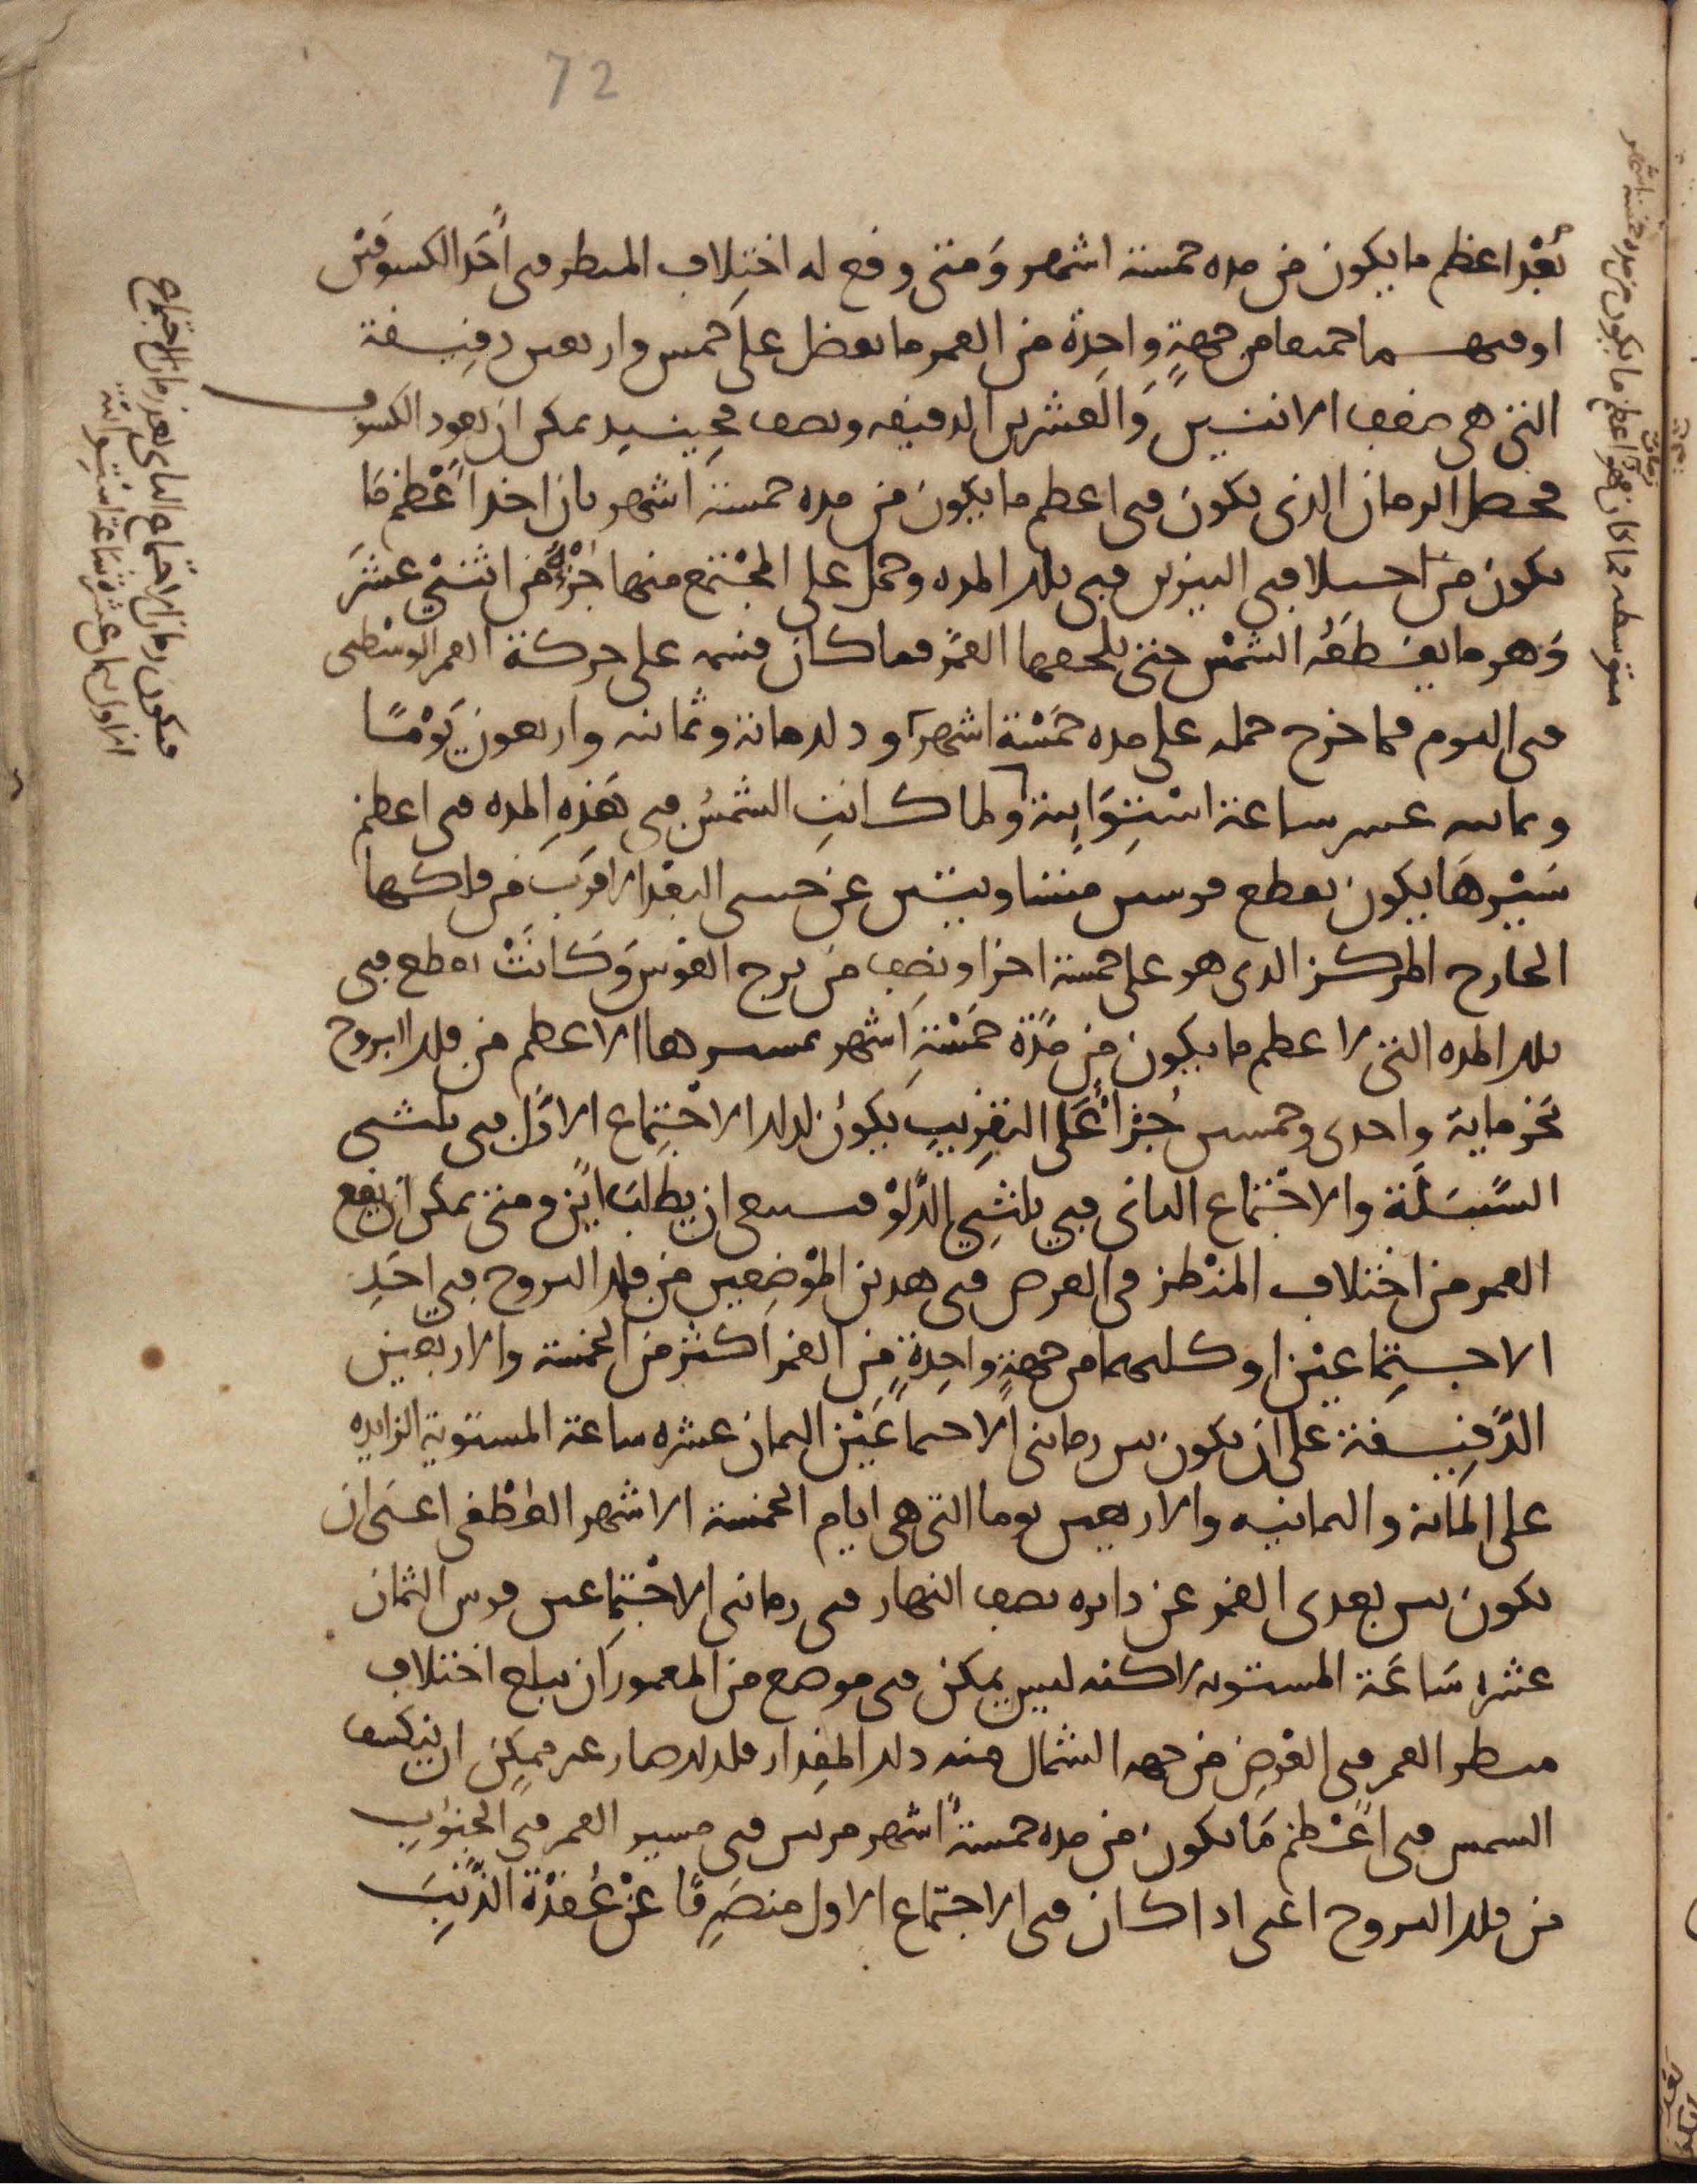 72
بُعْد اعظم ما يكون من مده خمسة اشهر وَمتى وقع له اختِلاف المنظر فى أَحَد الكسوفَين
او فيهما جميعا من جهةٍ واحِدة من القمر ما يفضل على خمس واربعين دقِيقة
التى هى ضعف الاثنتين وَالعشرين الدقيقه ونصف فحِينيدٍ يمكن ان يعود الكسوف
فيحصل الزمان الذى يكون فى اعظم ما يكون من مده خمسة اشهر بان اخذ أَعْظم مَا
يكون من اختلافى النيرين فى تلك المده وحمل على المجْتمع منها جُزْءٌ من اثنَيْ عشَرَ
وَهو ما يقطَعُه الشمْس حتى يلحقها القمَر فما كان قسم على حركة القمر الوسْطى
فى اليوم فما خرج حمله على مده خَمْسَة اشهر وذلك مائة وثمانيه واربعون يَوْمًا
وثمانيه عشر ساعة اسْتِوَايية ولما كانتِ الشمسُ فى هَذِهِ المده فى اعظم
سَيْرِهَا يكون بقطع قوسين متساويتين عن جنبتى البعْد الاقرَب من فلكها
الخارج المركز الذى هو على خمسة اجزا ونصف من برج القوس وَكَانَتْ تقطع فى
تلك المده التى لاعظم ما يكون من مدّة خَمْسَةِ اشهر بمسيرها الاعظم من فلك البروج
نحَو ماية واحدى وخمسين جُزْأً عَلى التقرِيبِ يكونُ لذلك الاجْتِماع الاوَّل فى ثلثى
السّنبلَة والاجْتماع الثانى فى ثلثي الدَّلْو فينبغى ان يطلبَ اين ومتى يمكن ان يقع
القمر من اختلاف المنْظر فى العرض فى هذين الموْضِعين من فلك البروج فى احَدِ
الاجتِماعيْن او كليهما من جهةٍ واحِدةٍ مِن القمر اكثر من الخمسة والاربعين
الدَّقِيقة على ان يكون بين زمانى الاجتماعَيْن الثمان عشره ساعة المستوية الزايده
على المائة والثمانيه والاربعين يوما التى هى ايام الخمسة الاشهر العظمى اعنى ان
يكون بين بعدى القمر عن دايره نصف النهار فى زمانى الاجْتِماعين قوس الثمان
عشره سَاعَة المستويه لاكنه ليس يمكن فى موضع من المعمور ان يبلغ اختلاف
منظر القمر فى العَرض من جهه الشمال منه ذلك المِقدار فلذلك صار غير ممكِن ان ينكسف
الشمس فى اعْظم مَا يكون من مده خمسة اشهر مرتين فى مسير القمر فى الجنوب
من فلك البروج اعنى اذا كان فى الاجتماع الاول منصَرِفًا عَنْ عُقدْة الذَّنَبِ
فيكون زمان الاجتماع الثانى بعد زمان الاجتماع
الاول بثمان عشرة ساعة استوائية
متوسطه فما كان فهو اعظم ما يكون من مده خمسة اشهر
زمان